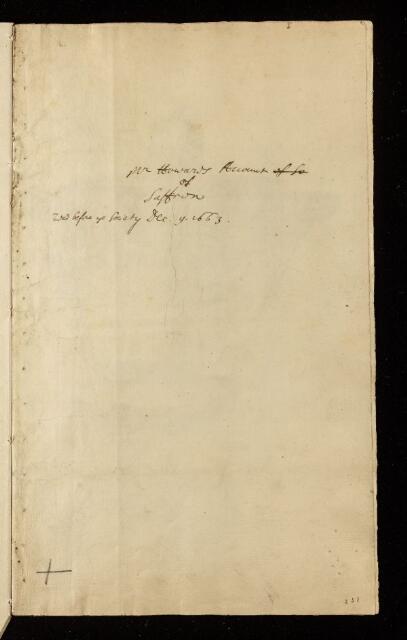 Mr Howards Account of Sa
of
Saffron
before ye Society Dec. 9. 1663.
231